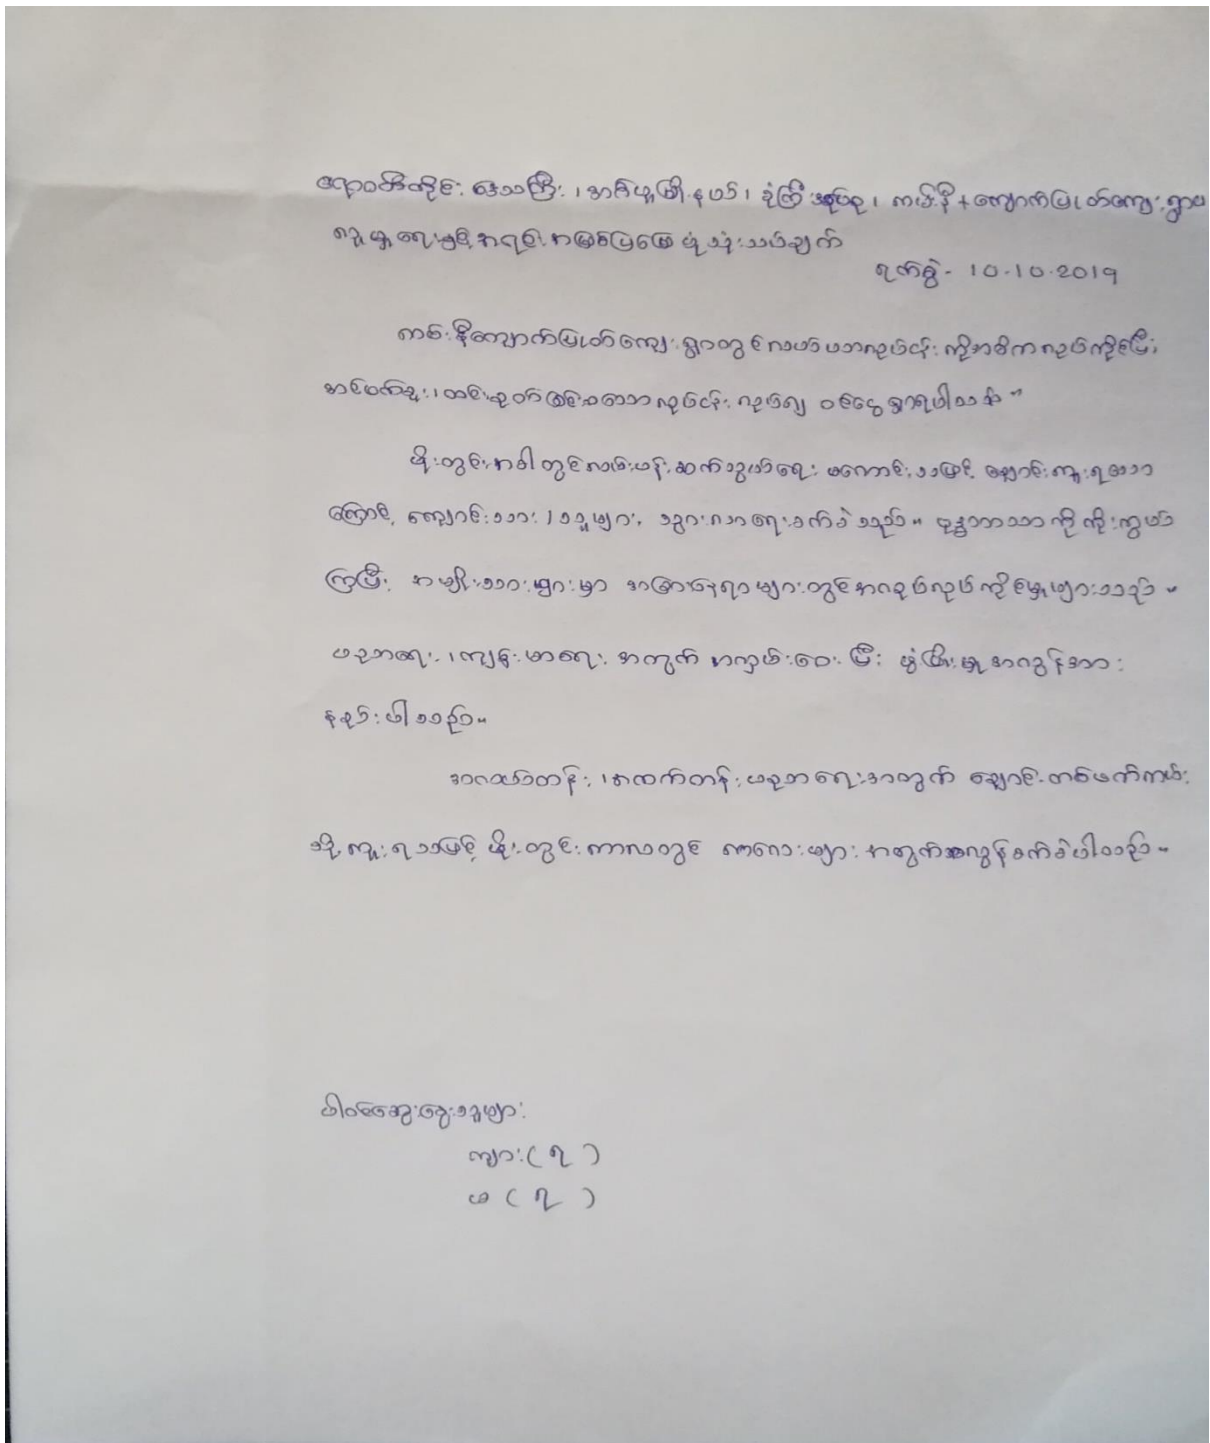 ဧရာဝတီတိုင်းဒေသကြီး၊ အင်္ဂပူမြို့နယ်၊ ခုံကြီးအုပ်စု၊ ကမ်းနီ+ကျောက်ပြုတ်ကျေးရွာမှ
လူမှုရေးနှင့် အရင်းအမြစ်ပြမြေပုံသုံးသပ်ချက်
ရက်စွဲ- 10.10.2019
ကမ်းနီကျောက်ပြုတ်ကျေးရွာတွင်လယ်ယာလုပ်ငန်းကိုအဓိကလုပ်ကိုင်ပြီး
ထင်းခုတ်ခြင်းစသောလုပ်ငန်းလုပ်၍ ဝင်ငွေရှာရပါသည်။
မိုးတွင်းအခါတွင်လမ်းပန်းဆက်သွယ်ရေး မကောင်းသဖြင့် ချောင်းကူးရသော
ကြောင့် ကျောင်းသား၊သူများ သွားလာရေးခက်ခဲသည်။ ဗုဒ္ဓဘာသာကိုကိုးကွယ်
ကြပြီး အမျိုးသားများမှာ အခြားနေရာများတွင်အလုပ်လုပ်ကိုင်မှုများသည်။
ပညာရေး၊ကျန်းမာရေး အတွက် အလှမ်းဝေးပြီး ဖွံ့ဖြိုးမှုအလွန်အား
နည်းပါသည်။
အလယ်တန်း၊အထက်တန်းပညာရေးအတွက် ချောင်းတစ်ဖက်ကမ်း
သို့ကူးရသဖြင့် မိုးတွင်းကာလတွင် ကလေးများ အတွက်အလွန်ခက်ခဲပါသည်။
ပါဝင်ဆွေးနွေးသူများ
ကျား(၅ )
မ (၅ )